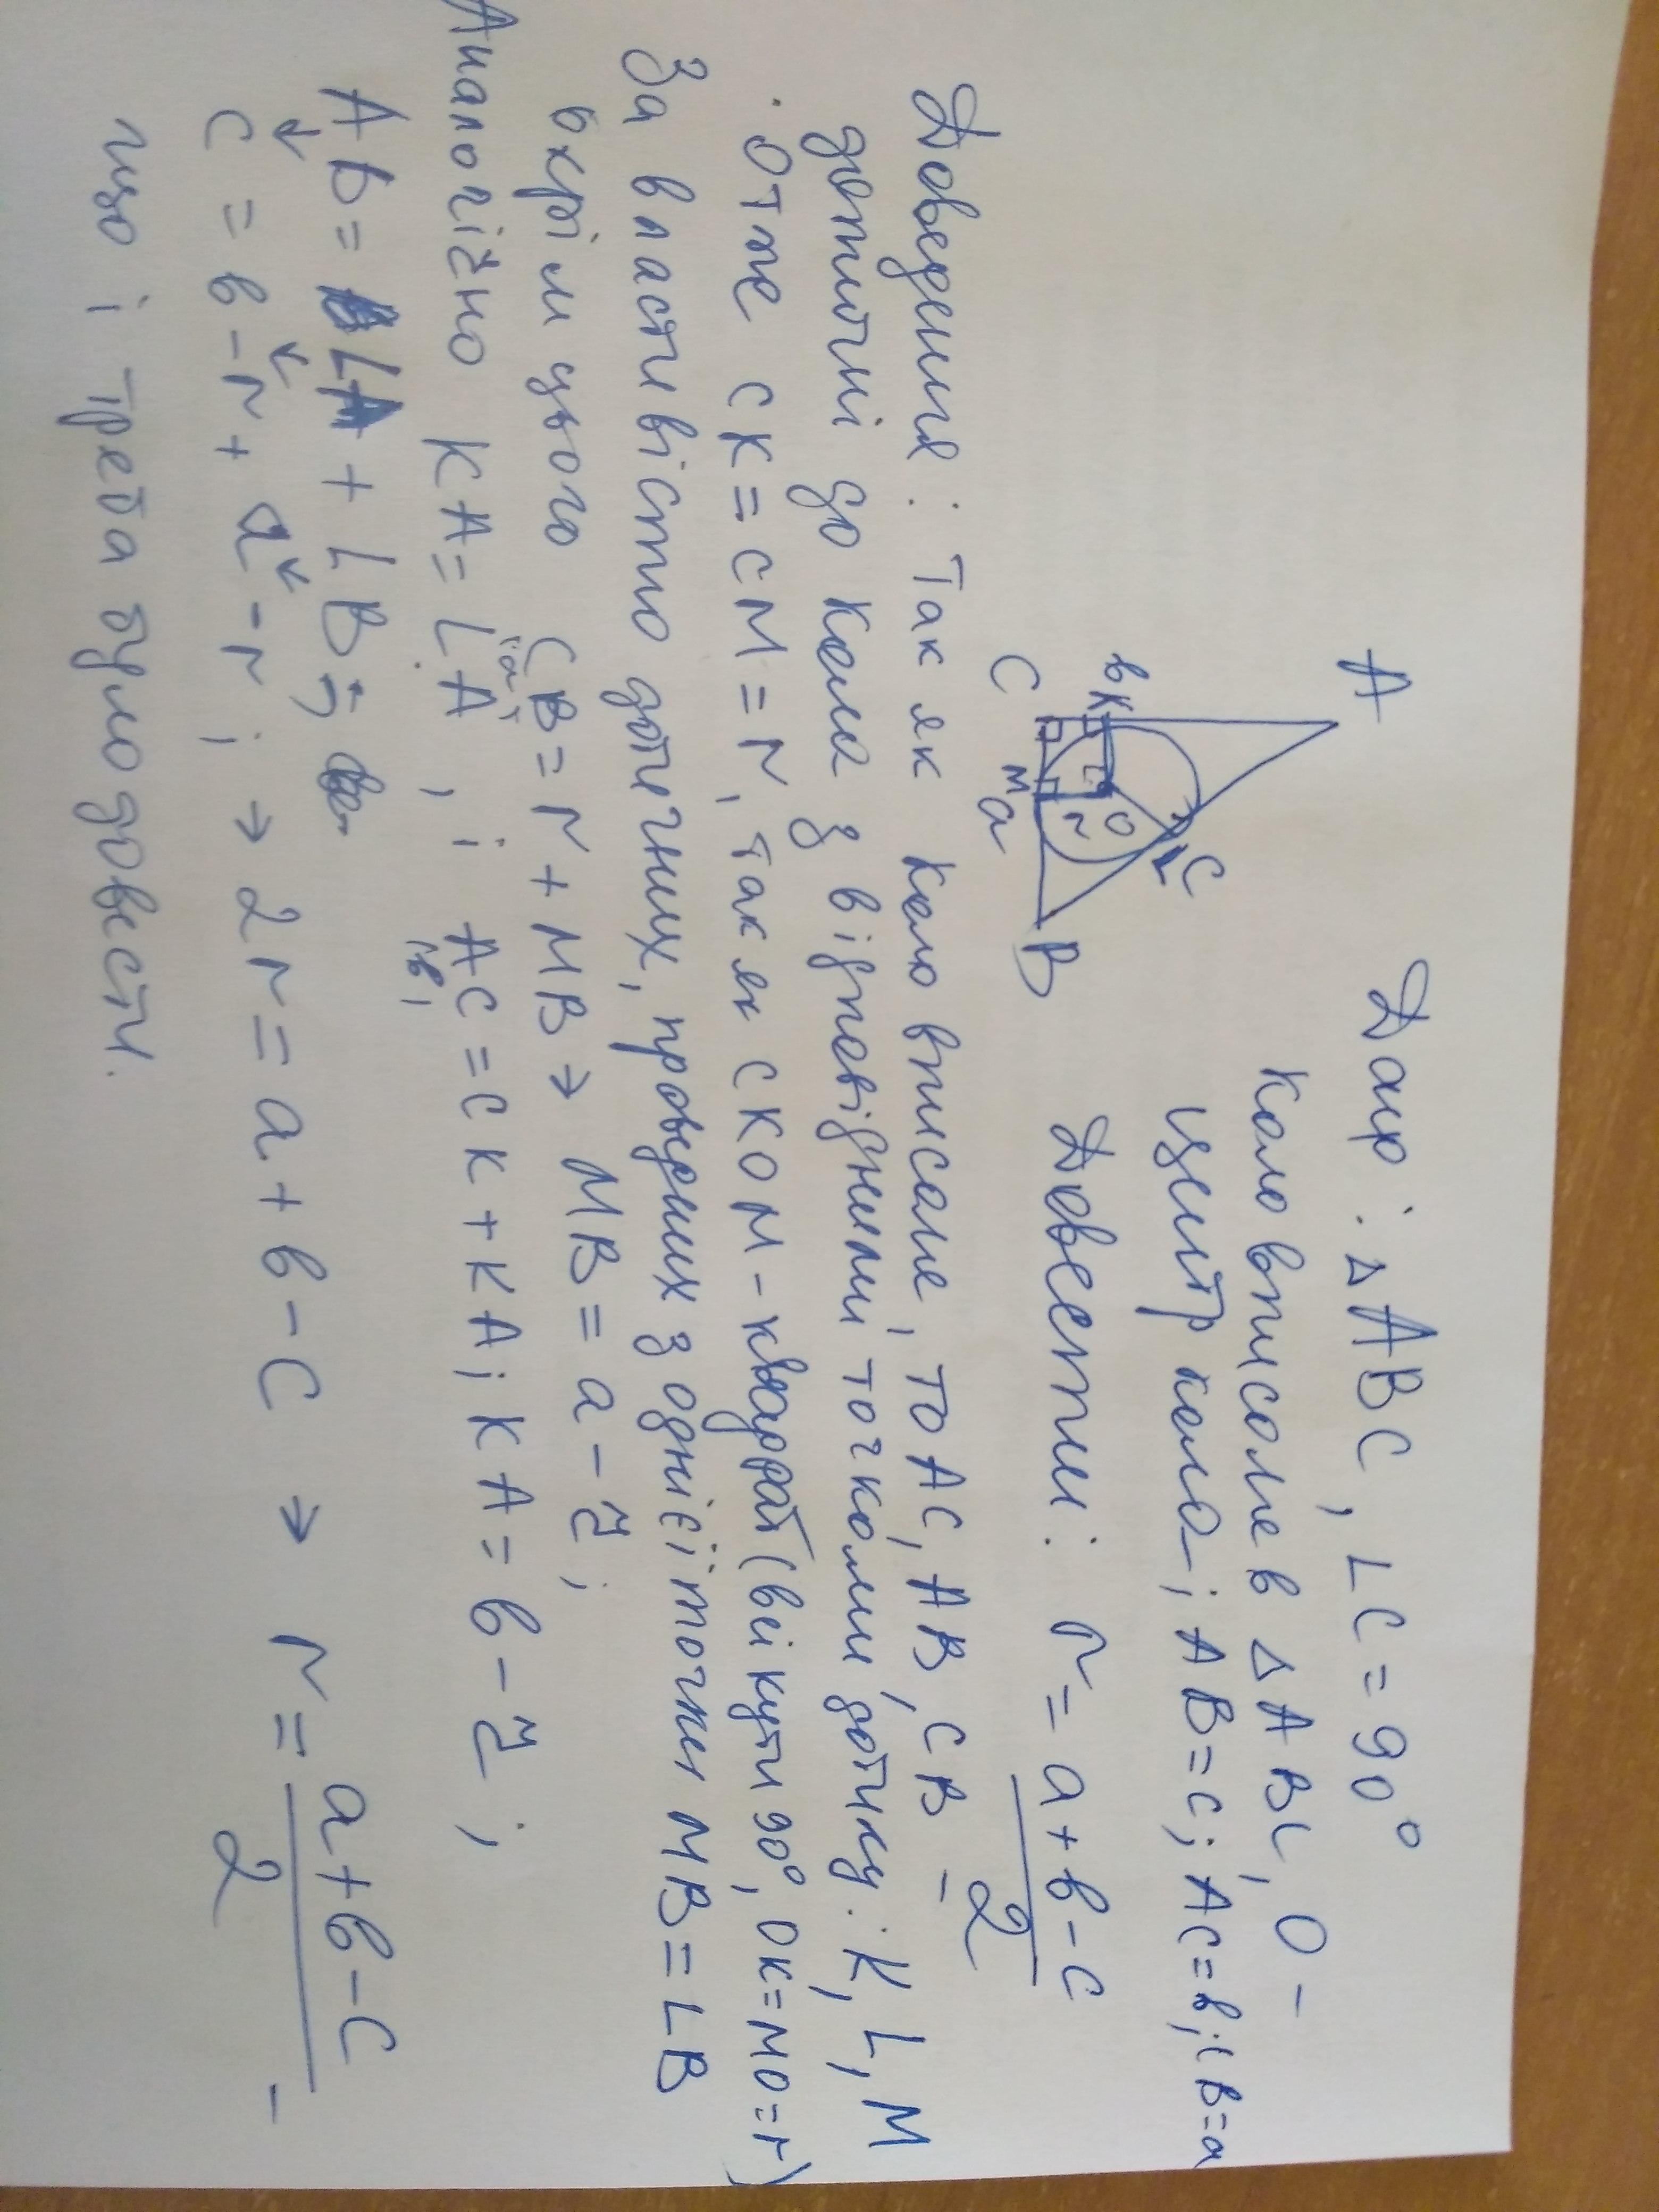 Дано: △ABC, LC = 90°
Коло вписане в △ABC, O -
центр кола; AB=c; AC=в; CB=a
Довести: r = a+в-c
2
A
в K
C
M
a
r
O
L
C
B
Доведення: Так як коло вписане, то AC, AB, CB -
дотичні до кола з відповідними точками дотику: K, L, M
. Отже CK = CM = r, так як CKOM - квадрат (всі кути 90°, OK=MO=r)
За властивістю дотичних, проведених з однієї точки MB = LB
окрім цього CB = r + MB → MB = a - r ;
"a"
Аналогічно KA = LA , і AC = CK + KA; KA = в - r ;
"в"
AB = LA + LB;
c = в - r + a - r ; → 2r = a + в - c → r = a+в-c -
2
що і треба було довести.